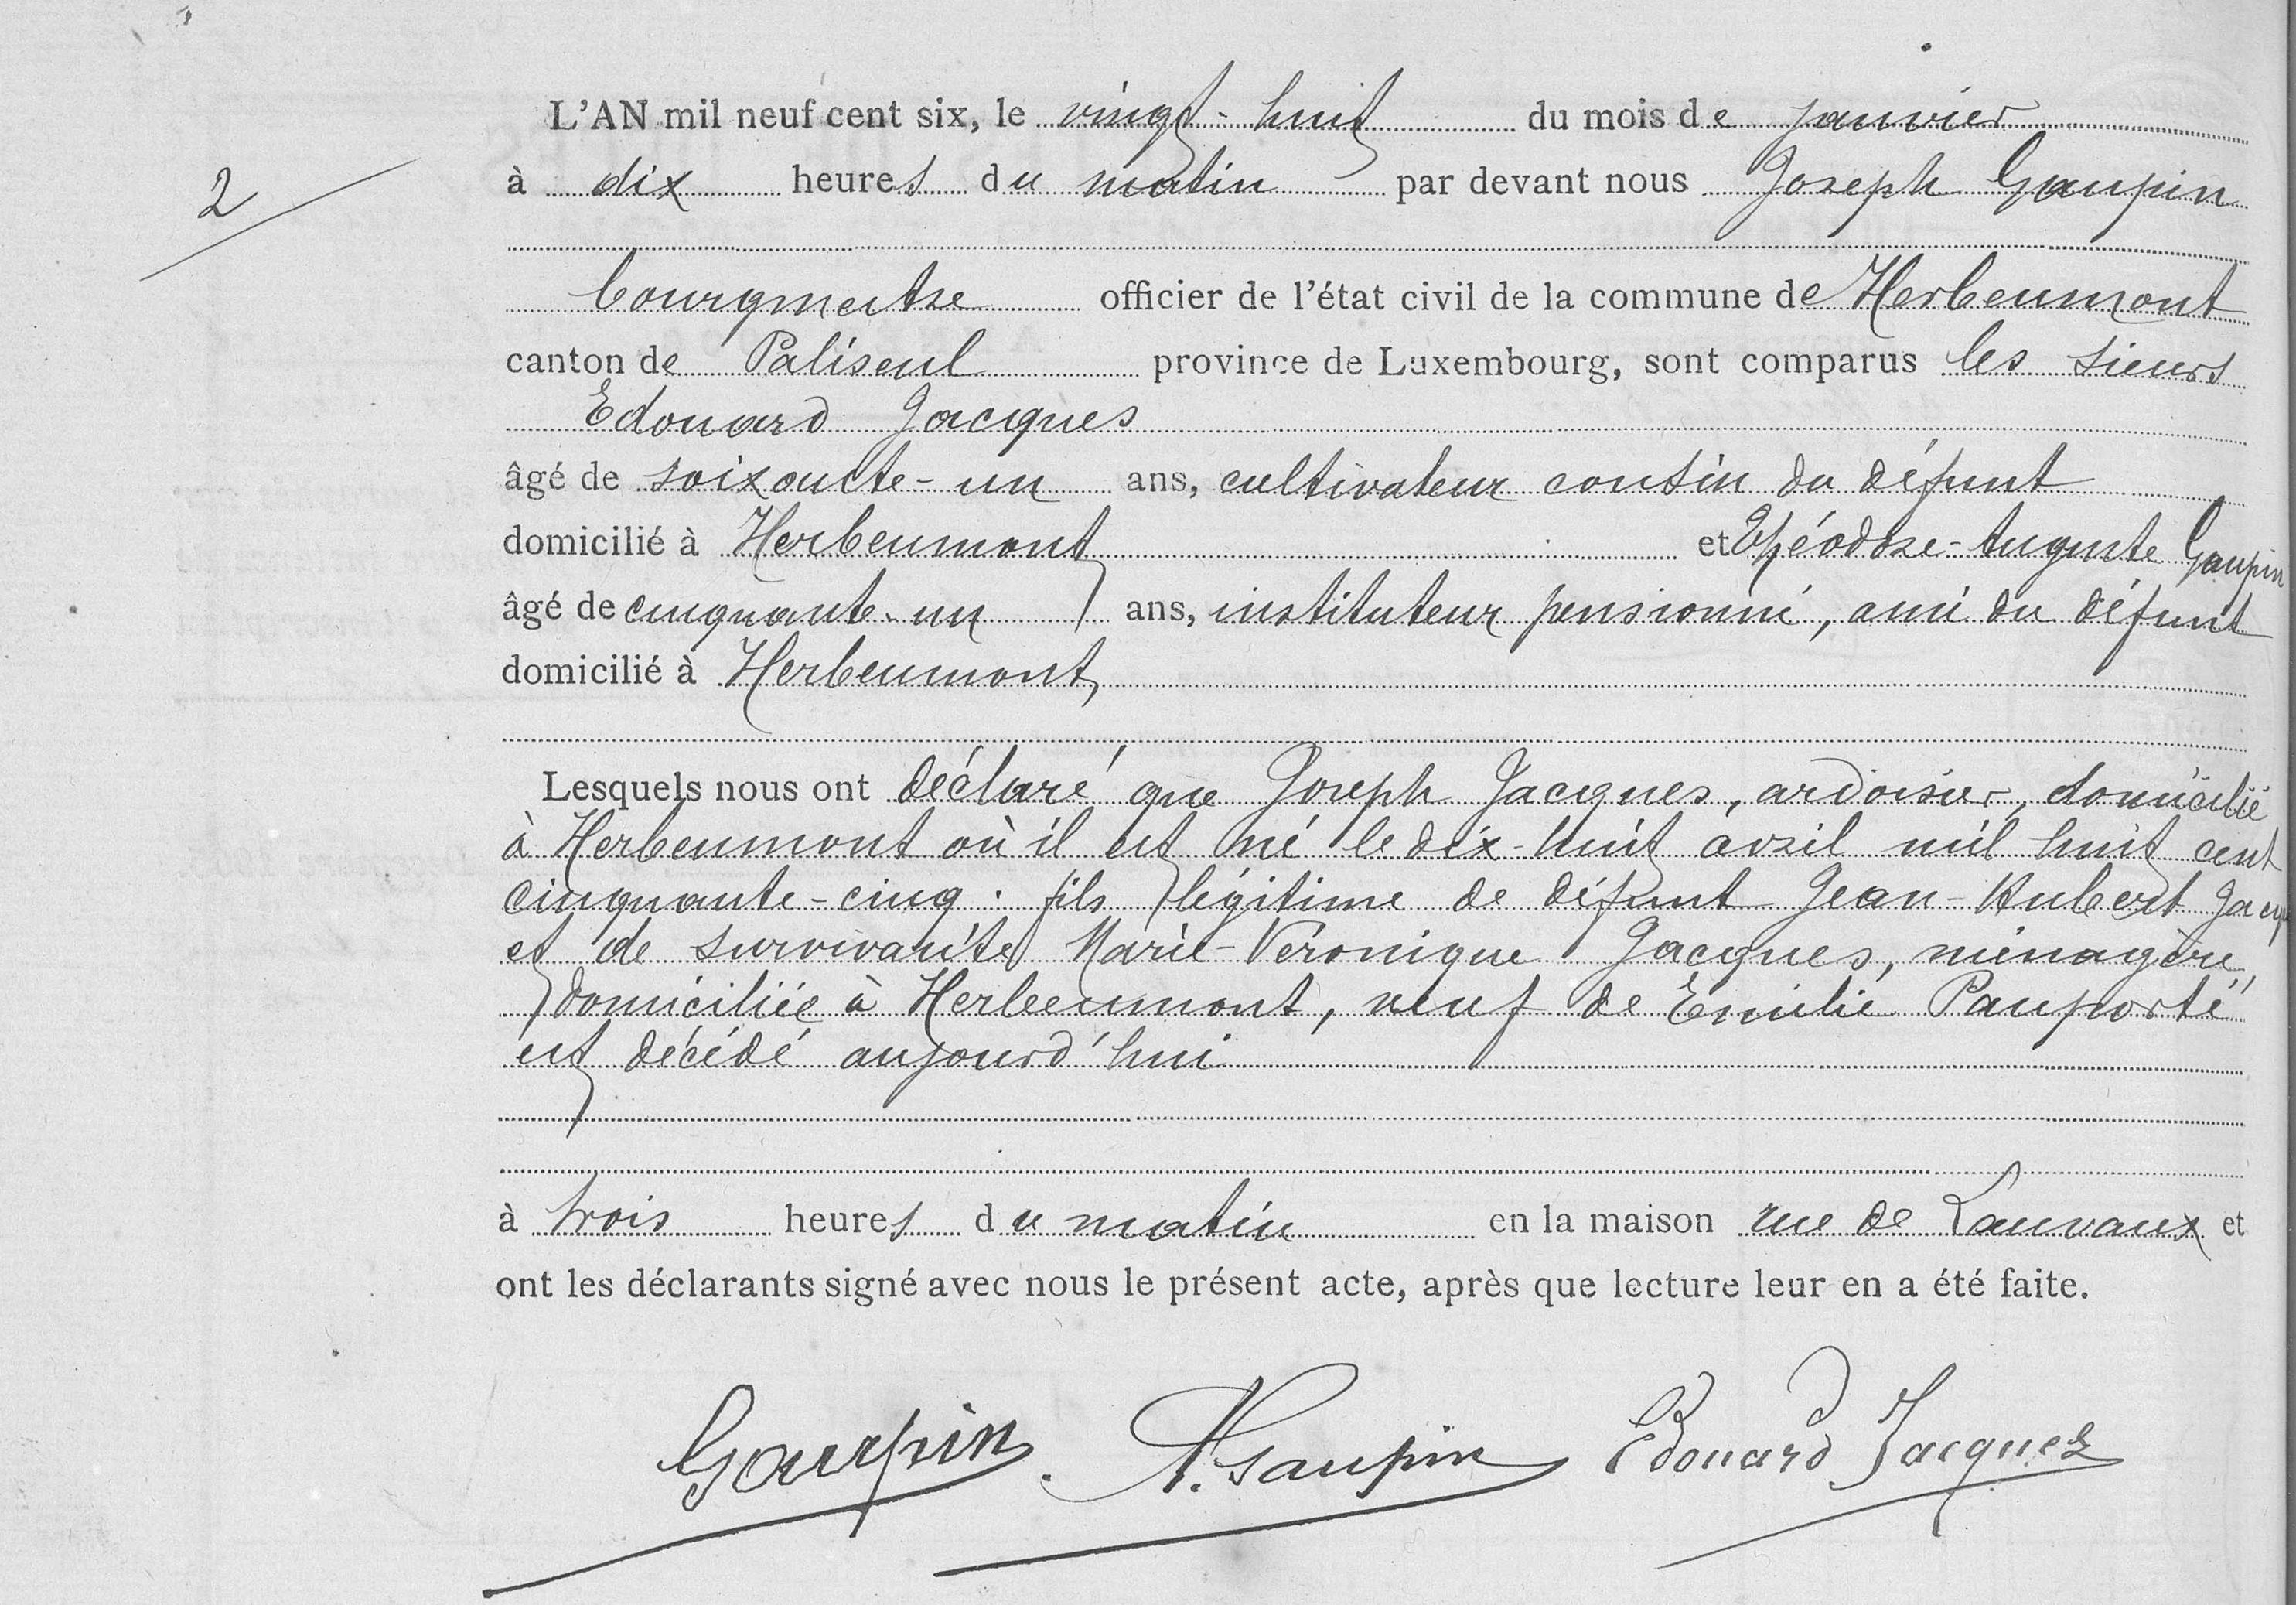 L'AN mil neuf cent six, le vingt-huit du mois de janvier
2
à dix heures du matin par devant nous Joseph Gaupin
bourgmestre officier de l'état civil de la commune de Herbeumont
canton de Paliseul province de Luxembourg, sont comparus les sieurs
Edouard Jacques
âgé de soixante-un ans, cultivateur cousin du défunt
domicilié à Herbeumont et Théodore-Auguste Gaupin
âgé de cinquante-un ans, instituteur pensionné, ami du défunt
domicilié à Herbeumont,
Lesquels nous ont déclaré que Joseph Jacques, ardoisier, domicilié
à Herbeumont où il est né le dix-huit avril mil huit cent
cinquante-cinq. fils légitime de défunt Jean-Hubert Jacqu
et de survivante Marie-Véronique Jacques, ménagère,
domiciliée à Herbeumont, veuf de Emilie Pauporté
est décédé aujourd'hui
à trois heures du matin en la maison rue de Lauvaux et
ont les déclarants signé avec nous le présent acte, après que lecture leur en a été faite.
Gaupin. A. Gaupin Edouard Jacques